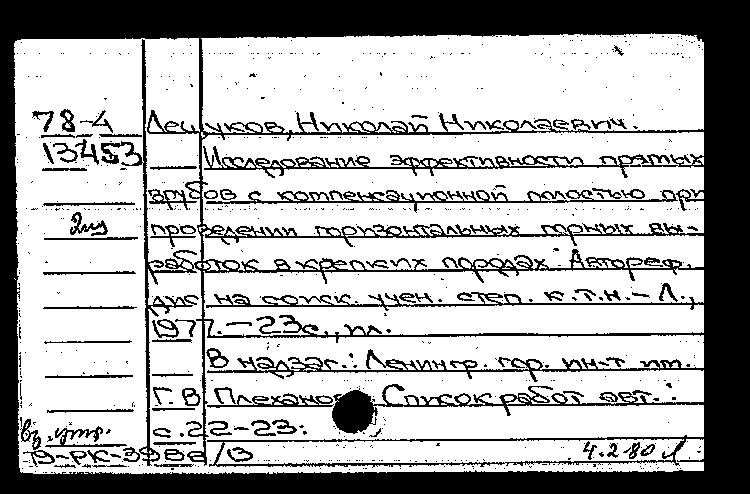 78-4 Лещуков, Николай Николаевич.
13453 Исследование эффективности прямых
врубов с компенсационной полостью при
2 из проведении горизонтальных горных вы-
работок в крепких породах: Автореф.
дис на соиск. учен. степ. к.т.н. - Л.,
1977. - 23с., ил.
В надзаг.: Ленингр. гор. ин-т им.
Г. В. Плеханова Список работ авт.:
с. 22-23.
/В 4.2.80